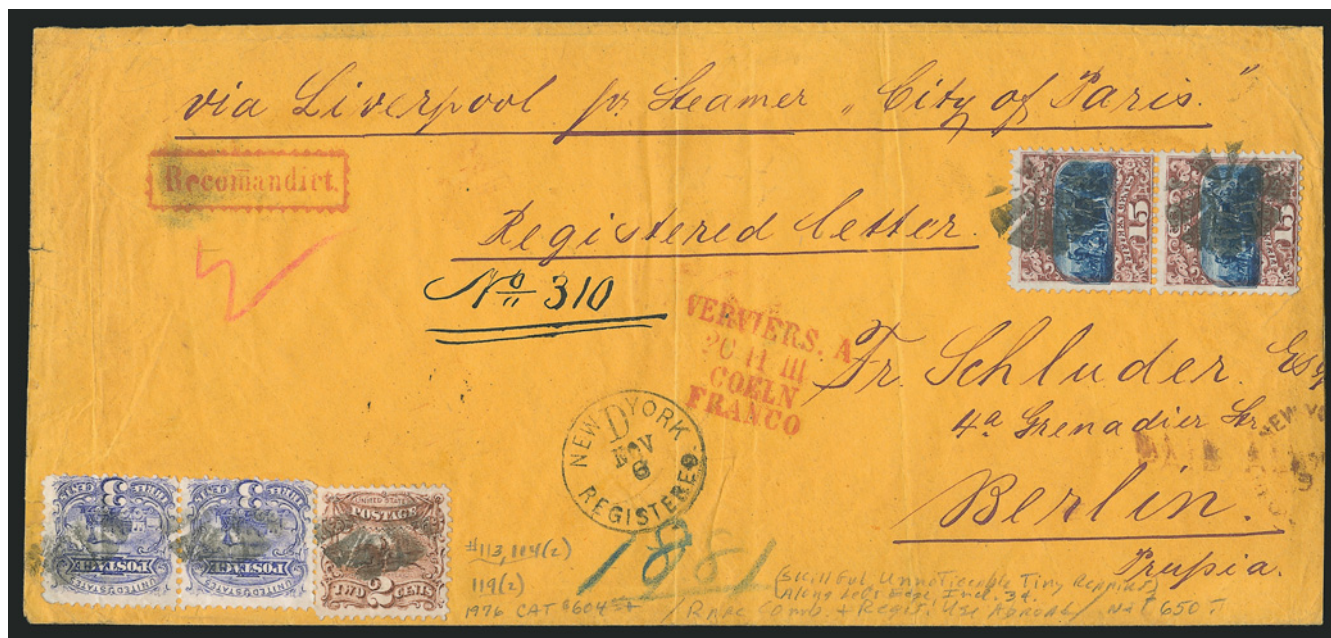 via Liverpool pr. Steamer „City of Paris."
Recomandirt.
Registered Letter.
No 310
15
FIFTEEN CENTS
15
VERVIERS. A
20 11 III
COELN
FRANCO
Fr. Schluder. Esq
4a Grenadier Str.
NEW YO
PAID ALL
Berlin.
Prußia.
NEW YORK
D
NOV
8
REGISTERED
UNITED STATES
POSTAGE
3
UNITED STATES
POSTAGE
3
UNITED STATES
POSTAGE
2
TWO CENTS
1881
#113, 114(2)
119(2)
1976 CAT $604 +
(Skillful, Unnoticeable Tiny Repairs
Along Left Edge, Incl. 3¢.
Rare Comb. + Regis. Use Abroad / Net 650